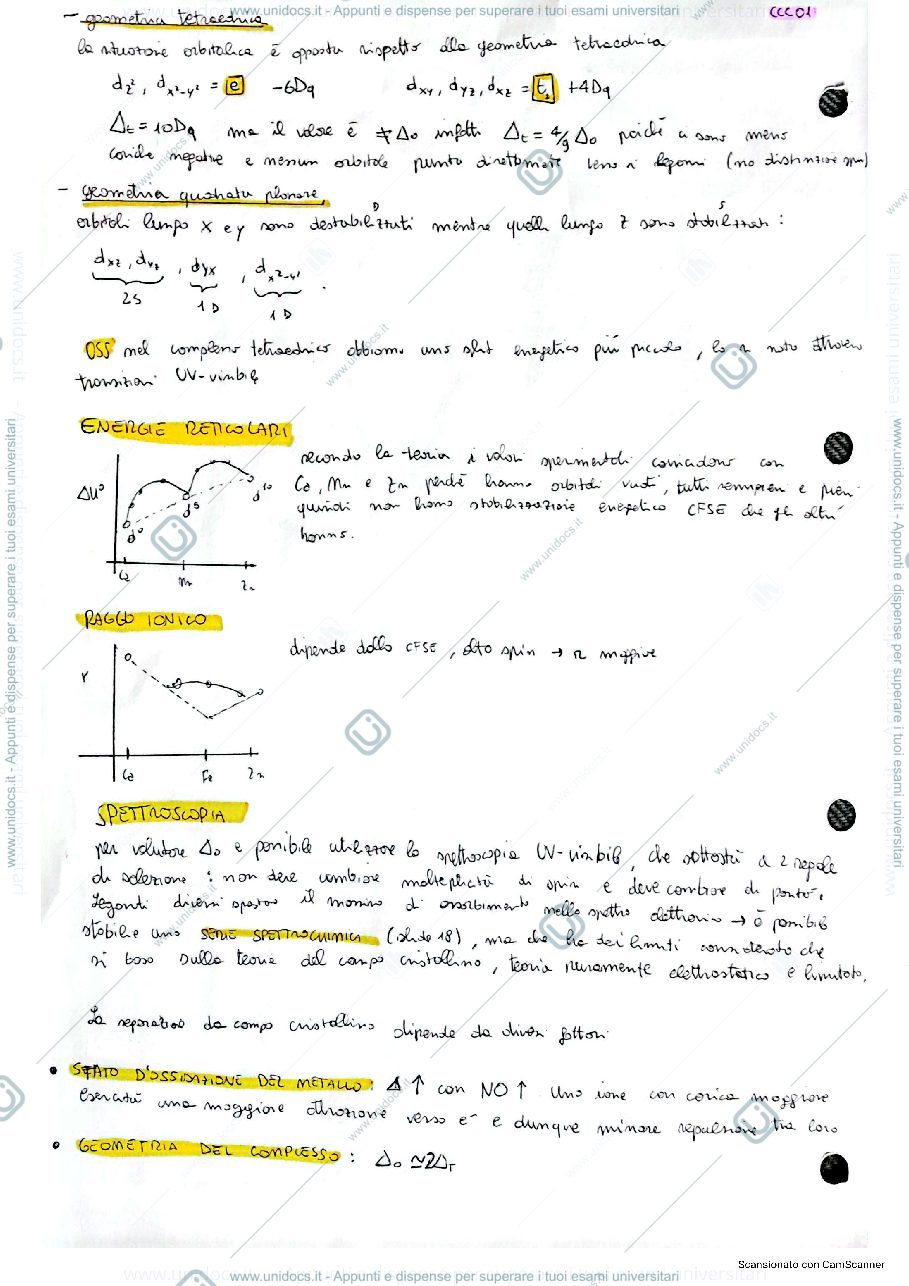 www.unidocs.it - Appunti e dispense per superare i tuoi esami universitari
CCC01
- geometria tetraedrica
la situazione orbitalica è opposta rispetto alla geometria tetraedrica
dz², dx²-y² = e -6Dq dxy, dyz, dxz = t₂ +4Dq
Δt = 10Dq ma il valore è ≠ Δo infatti Δt = 4/9 Δo poiché ci sono meno
cariche negative e nessun orbitale punta direttamente verso i legami (no distinzione spin)
- geometria quadrata planare
D S
orbitali lungo x e y sono destabilizzati mentre quelli lungo z sono stabilizzati:
dxz, dyz , dyx , dx²-y² .
2S 1D 1D
OSS nel complesso tetraedrico abbiamo uno split energetico più piccolo, lo si nota attraverso
transizioni UV-visibile
ENERGIE RETICOLARI
ΔU° d⁰ d⁵ d¹⁰
Ca Mn Zn
secondo la teoria i valori sperimentali coincidono con
Ca, Mn e Zn perché hanno orbitali vuoti, tutti semipieni e pieni
quindi non hanno stabilizzazione energetica CFSE che gli altri
hanno.
RAGGIO IONICO
r
Ca Fe Zn
dipende dalla CFSE, alto spin → r maggiore
SPETTROSCOPIA
per valutare Δo è possibile utilizzare la spettroscopia UV-visibile, che sottostà a 2 regole
di selezione: non deve cambiare molteplicità di spin e deve cambiare di parità.
Leganti diversi spostano il massimo di assorbimento nello spettro elettronico → è possibile
stabilire una SERIE SPETTROCHIMICA (slide 18), ma che ha dei limiti considerato che
si basa sulla teoria del campo cristallino, teoria puramente elettrostatica e limitata.
La separazione da campo cristallino dipende da diversi fattori
• STATO D'OSSIDAZIONE DEL METALLO: Δ ↑ con NO ↑ Uno ione con carica maggiore
esercita una maggiore attrazione verso e⁻ e dunque minore repulsione tra loro
• GEOMETRIA DEL COMPLESSO: Δo ≃ 2ΔT
Scansionato con CamScanner
www.unidocs.it - Appunti e dispense per superare i tuoi esami universitari